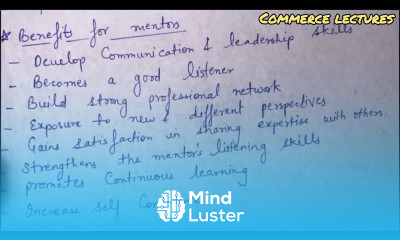 COMMERCE LECTURES
* Benefits for mentors
- Develop Communication & leadership skills
- Becomes a good listener
- Build strong professional network
- Exposure to new & different perspectives
- Gains satisfaction in sharing expertise with others.
- Strengthens the mentor's listening skills
- promotes Continuous learning
- Increase self
Mind
Luster